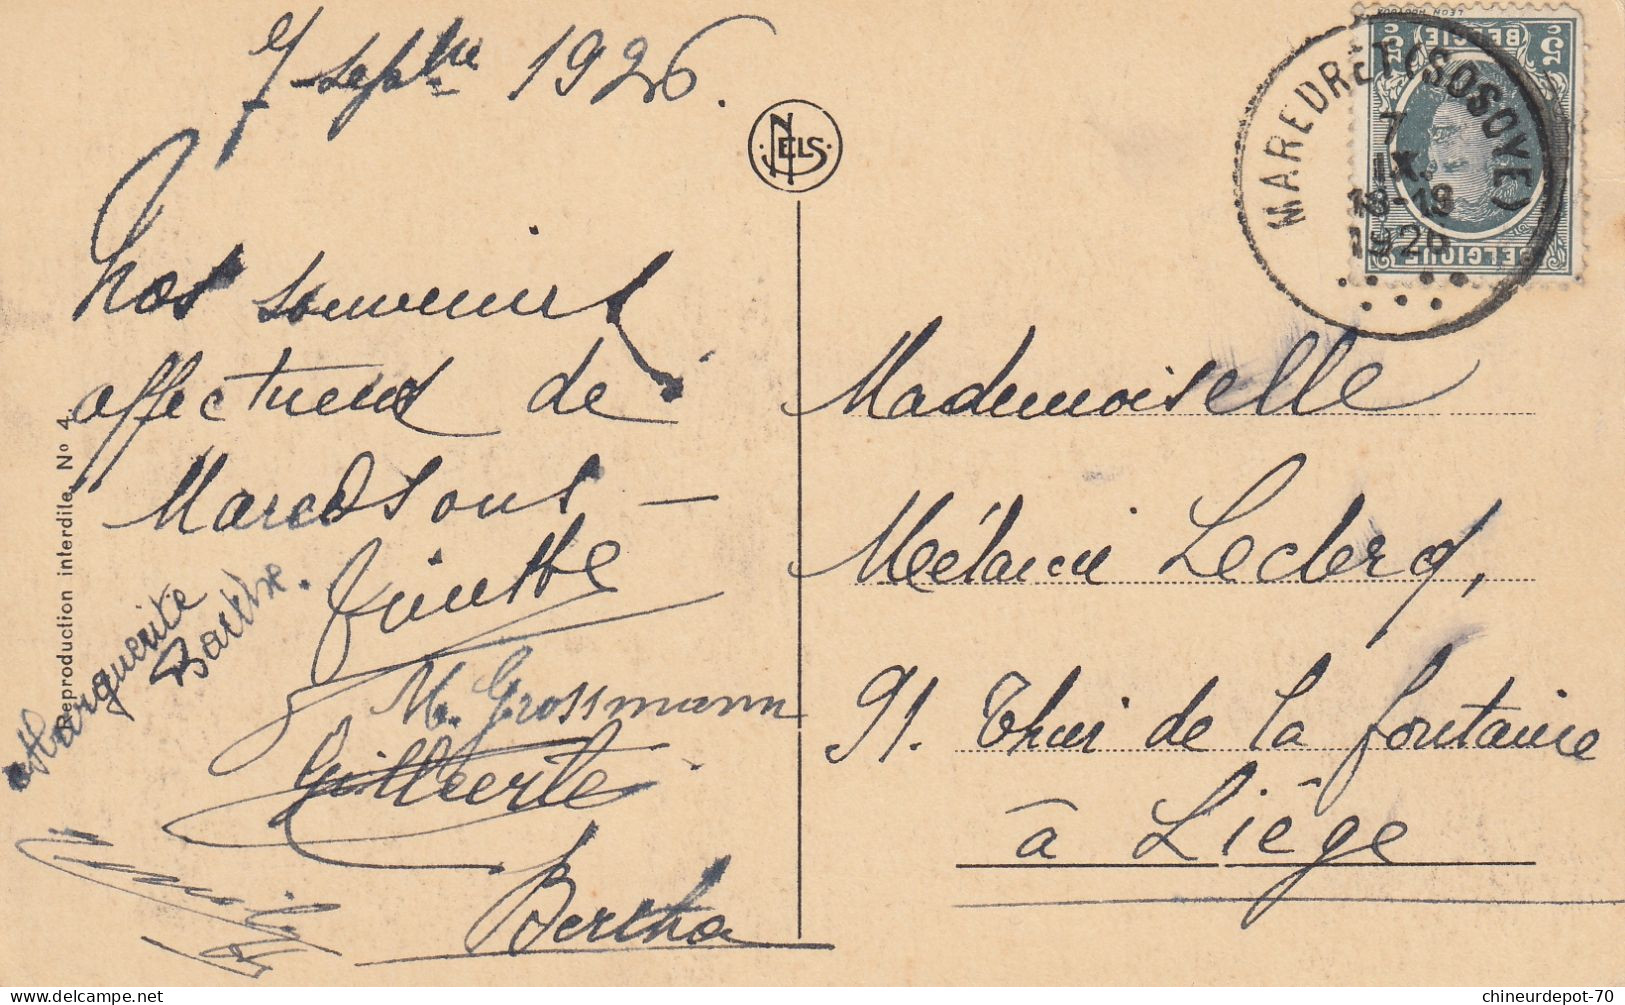 7 septbre 1926.
Nos souvenirs
affectueux de
Maredsous —
M. Grossmann
Gilberte
Bertha
Marguerite
Barthe.
Reproduction interdite Nº 4.
NELS
MAREDRET (SOSOYE)
7
IX
18-19
1926
LEON HOUYOUX
BELGIË
5c 5c
BELGIQUE
Mademoiselle
Mélanie Leclercq,
91. Thier de la fontaine
à Liége
chineurdepot-70